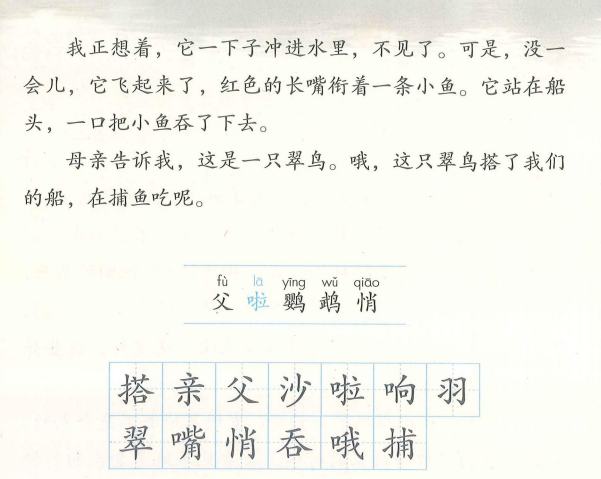 我正想着，它一下子冲进水里，不见了。可是，没一
会儿，它飞起来了，红色的长嘴衔着一条小鱼。它站在船
头，一口把小鱼吞了下去。
母亲告诉我，这是一只翠鸟。哦，这只翠鸟搭了我们
的船，在捕鱼吃呢。
fù lā yīng wǔ qiāo
父 啦 鹦 鹉 悄
搭 亲 父 沙 啦 响 羽
翠 嘴 悄 吞 哦 捕